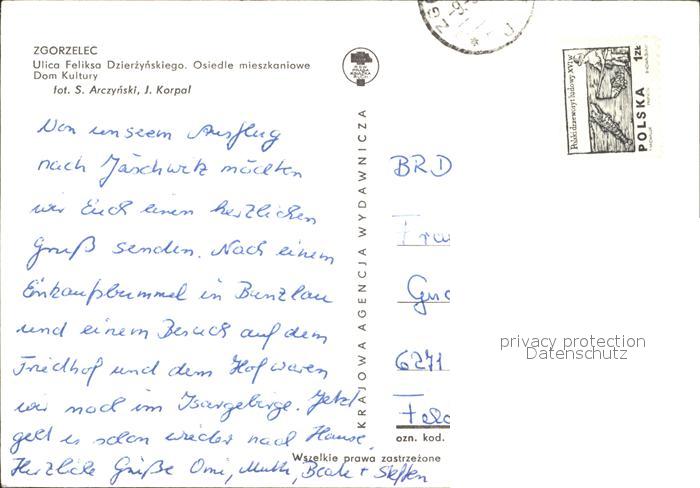 ZGORZELEC
Ulica Feliksa Dzierżyńskiego. Osiedle mieszkaniowe
Dom Kultury
fot. S. Arczyński, J. Korpal
Von unserem Ausflug
nach Jäschwitz möchten
wir Euch einen herzlichen
Gruß senden. Nach einem
Einkaufsbummel in Bunzlau
und einem Besuch auf dem
Friedhof und dem Hof waren
wir noch im Isargebirge. Jetzt
geht es schon wieder nach Hause.
Herzliche Grüße Omi, Mutti, Beate + Steffen
KRAJOWA AGENCJA WYDAWNICZA
Polski drzeworyt ludowy XVI w
POLSKA 1zł
BRD
Frau
6271
privacy protection
Datenschutz
ozn. kod.
Wszelkie prawa zastrzeżone